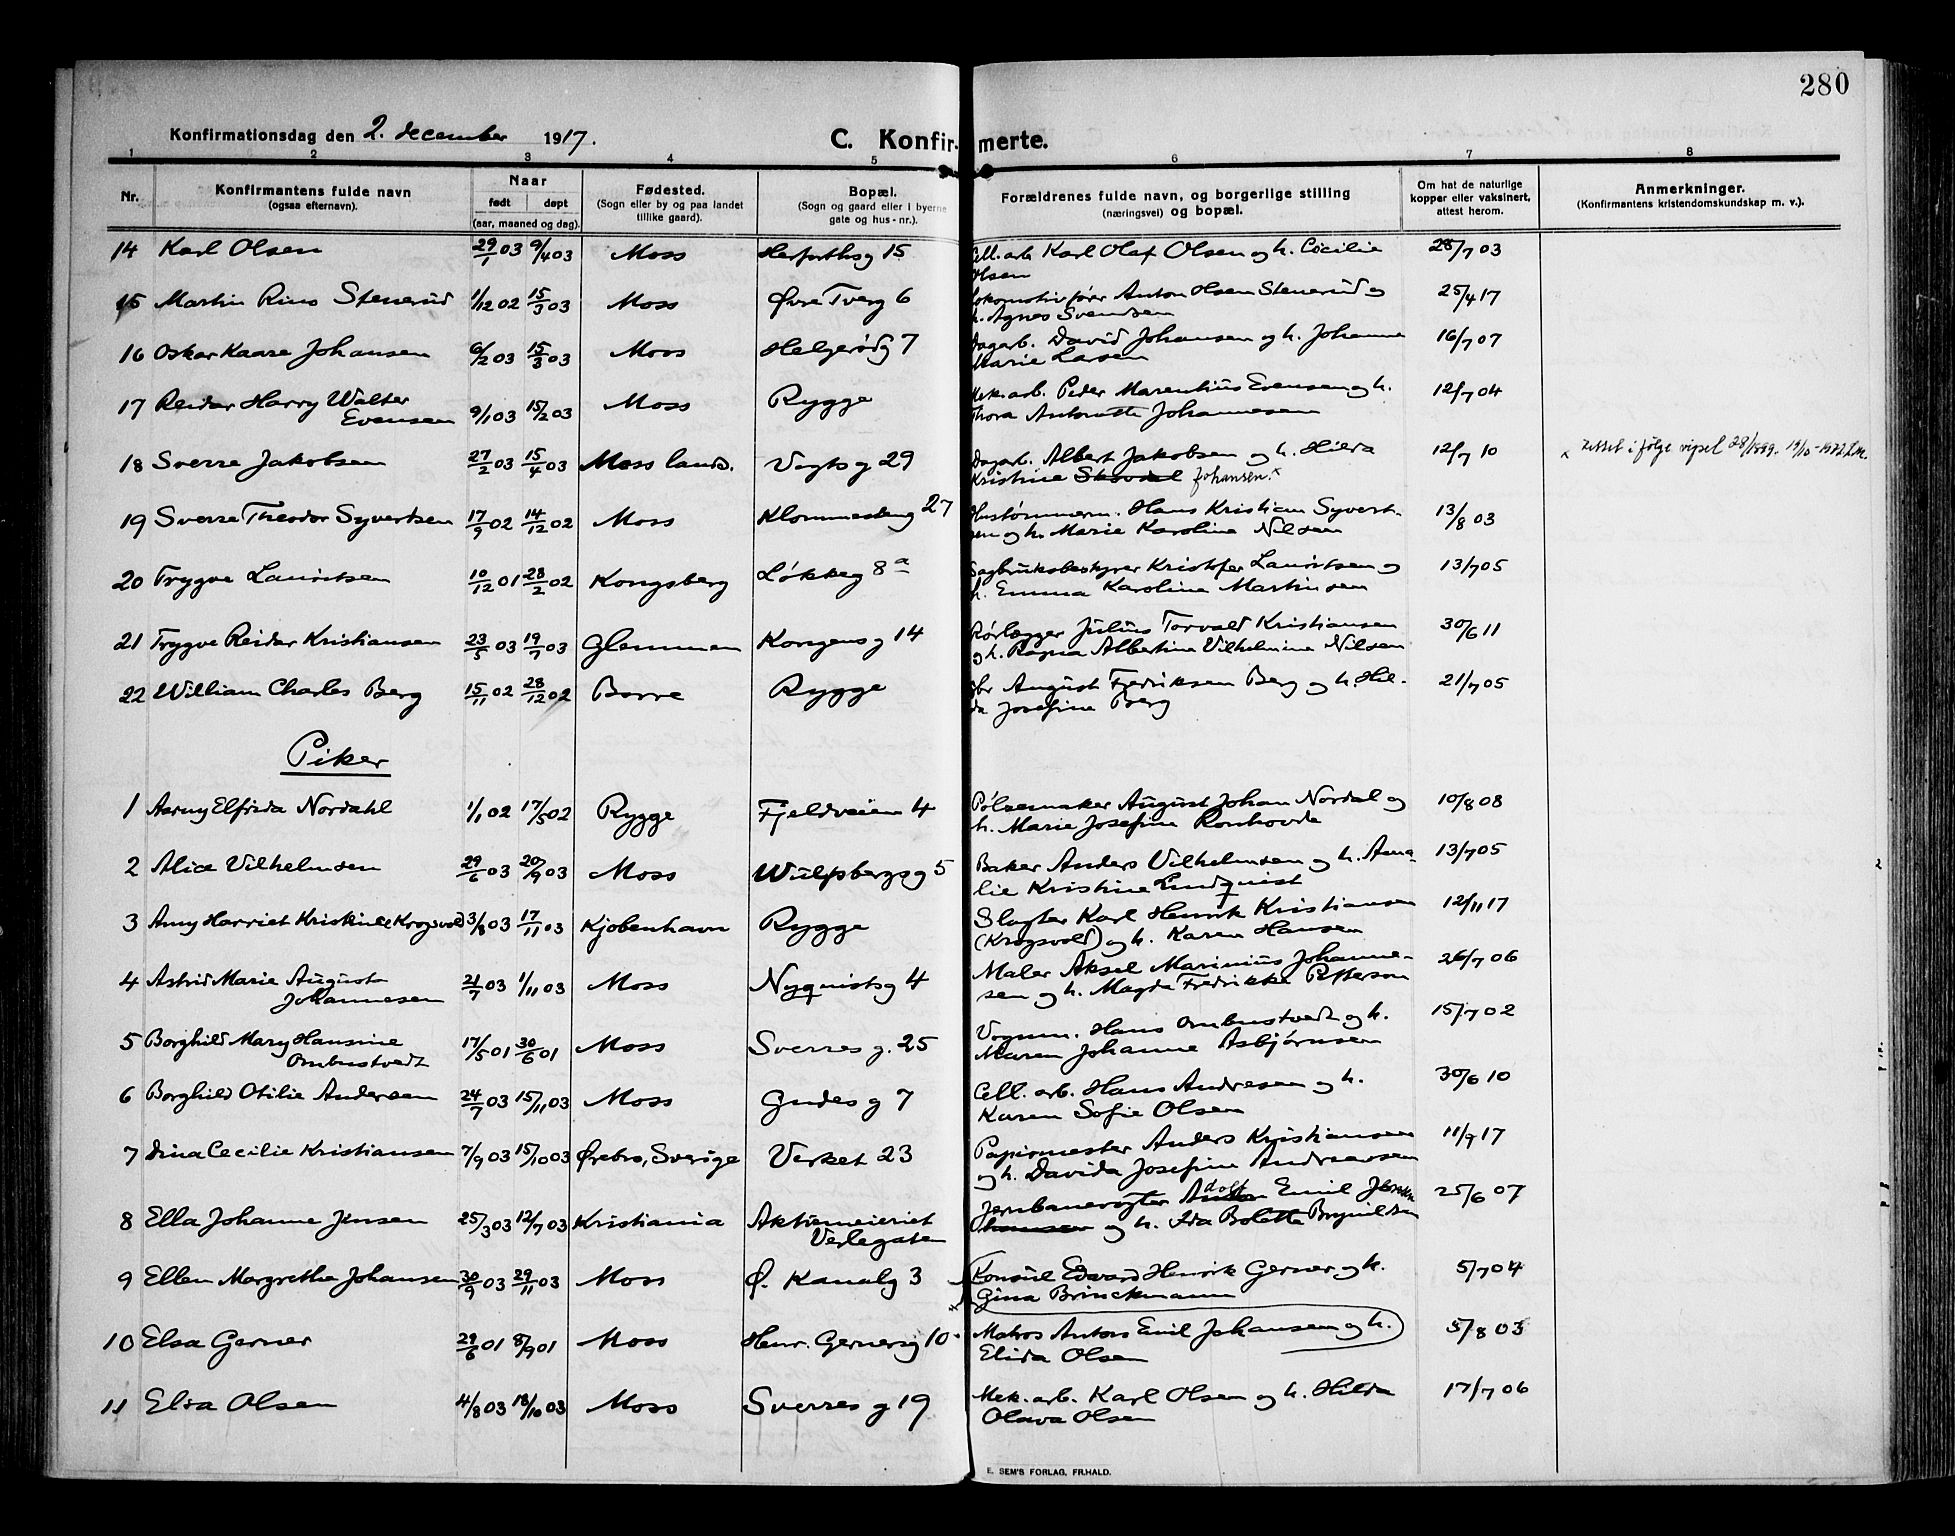 280
Konfirmationsdag den 2. december 1917.
C. Konfir- merte.
1 2 3 4 5 6 7 8
Nr.
Konfirmantens fulde navn
(ogsaa efternavn).
Naar
født døpt
(aar, maaned og dag).
Fødested.
(Sogn eller by og paa landet
tillike gaard).
Bopæl.
(Sogn og gaard eller i byerne
gate og hus-nr.).
Forældrenes fulde navn, og borgerlige stilling
(næringsvei) og bopæl.
Om hat de naturlige
kopper eller vaksinert,
attest herom.
Anmerkninger.
(Konfirmantens kristendomskundskap m. v.).
14 Karl Olsen 29/1 03 9/4 03 Moss Herforthsg 15 Cell. arb Karl Olaf Olsen og h. Cecilie
Olsen 28/7 03
15 Martin Rino Stenerud 1/12 02 15/3 03 Moss Øvre Tverg 6 Lokomotivfører Anton Olsen Stenerud og
h. Agnes Svendsen 25/4 17
16 Oskar Kaare Johansen 6/2 03 15/3 03 Moss Helgerødg 7 Dagarb. David Johansen og h. Johanne
Marie Larsen 16/7 07
17 Reidar Harry Walter
Evensen 9/1 03 15/2 03 Moss Rygge Mek. arb. Peder Marentius Evensen og h.
Thora Antonette Johannesen 12/7 04
18 Sverre Jakobsen 27/2 03 15/4 03 Moss lands. Vogts g 29 Dagarb. Albert Jakobsen og h. Hilda
Kristine Skovdal Johansen.x 12/7 10
x Rettet i følge vigsel 28/1899. 19/10-1972
19 Sverre Theodor Syvertsen 17/9 02 14/12 02 Moss Klommesteng 27 Hustømmerm. Hans Kristian Syvert-
sen og h. Marie Karoline Nilsen 13/8 03
20 Trygve Lauritsen 10/12 01 28/2 02 Kongsberg Løkkeg 8a Sagbruksbestyrer Kristofer Lauritsen og
h. Emma Karoline Martinsen 13/7 05
21 Trygve Reidar Kristiansen 23/5 03 19/7 03 Glemmen Kongens g 14 Rørlægger Julius Torvald Kristiansen
og h. Ragna Albertine Vilhelmine Nilsen 30/6 11
22 William Charles Berg 15/11 02 28/12 02 Borre Rygge August Fredriksen Berg og h. Hil-
da Josefine Berg 21/7 05
Piker
1 Aasny Elfrida Nordahl 1/1 02 17/5 02 Rygge Fjeldveien 4 Pølsemaker August Johan Nordal og
h. Marie Josefine Ronhovde 10/8 08
2 Alice Vilhelmsen 29/6 03 20/9 03 Moss Wulfsbergs g 5 Baker Anders Vilhelmsen og h. Ama-
lie Kristine Lundquist 13/7 05
3 Amy Harriet Kristine Krogsvold 3/8 03 17/11 03 Kjøbenhavn Rygge Slagter Karl Henrik Kristiansen
(Krogsvold) og h. Karen Hansen 12/11 17
4 Astrid Marie August
Johannesen 21/7 03 1/11 03 Moss Nyquistsg 4 Maler Aksel Marinius Johanne-
sen og h. Magda Fredrikke Petterson 26/7 06
5 Borghild Mary Hansine
Ombustvedt 17/5 01 30/6 01 Moss Sverres g. 25 Vognm. Hans Ombustvedt og h.
Maren Johanne Asbjørnsen 15/7 02
6 Borghild Otilie Andersen 24/7 03 15/11 03 Moss Gudes g 7 Cell. arb. Hans Andresen og h.
Karen Sofie Olsen 30/6 10
7 Dina Cecilie Kristiansen 7/9 03 15/10 03 Ørebro, Sverige Verket 23 Papirmester Anders Kristiansen
og h. Davida Josefine Andreassen 11/9 17
8 Ella Johanne Jensen 25/3 03 12/7 03 Kristiania Aktiemeieriet
Verlegaten Jernbanevogter Adolf Emil Jensen
og h. Ida Bolette Brynildsen 25/6 07
9 Ellen Margrethe Johansen 30/9 03 29/11 03 Moss Ø. Kanalg 3 Konsul Edvard Henrik Gerner og h.
Gina Brinckmann 5/7 04
10 Elsa Gerner 29/6 01 8/9 01 Moss Henr. Gernersg 10 Matros Antons Emil Johansen og h.
Elida Olsen 5/8 03
11 Elsa Olsen 4/8 03 18/10 03 Moss Sverres g 19 Mek. arb. Karl Olsen og h. Hilda
Olava Olsen 17/7 06
E. SEM'S FORLAG, FR.HALD.